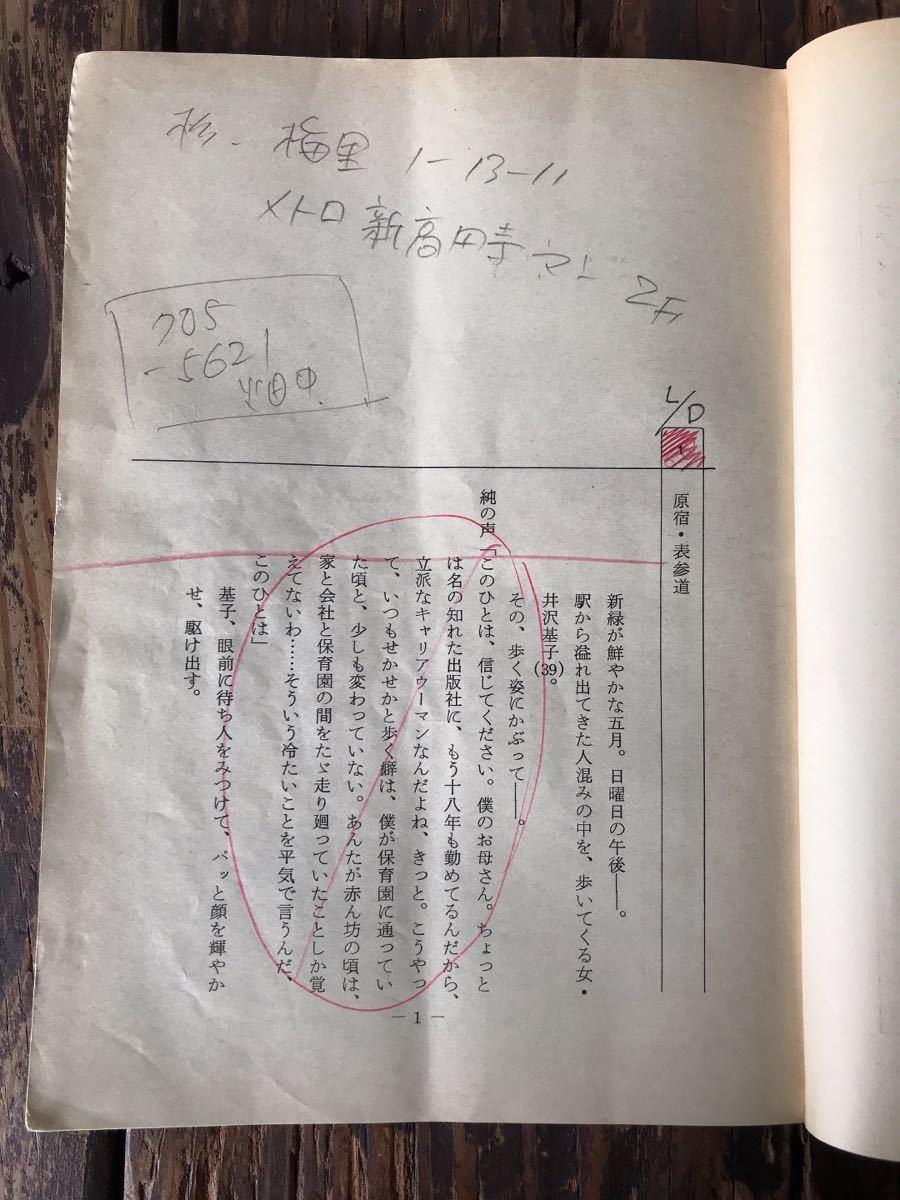 杉. 梅里 1-13-11
メトロ 新高円寺 マエ 2F
705
-5621
L/D
1
原宿・表参道
新緑が鮮やかな五月。日曜日の午後――。
駅から溢れ出てきた人混みの中を、歩いてくる女・
井沢基子(39)。
その、歩く姿にかぶって――。
純の声「このひとは、信じてください。僕のお母さん。ちょっと
は名の知れた出版社に、もう十八年も勤めてるんだから、
立派なキャリアウーマンなんだよね、きっと。こうやっ
て、いつもせかせかと歩く癖は、僕が保育園に通ってい
た頃と、少しも変わっていない。あんたが赤ん坊の頃は、
家と会社と保育園の間をたゞ走り廻っていたことしか覚
えてないわ……そういう冷たいことを平気で言うんだ、
このひとは」
基子、眼前に待ち人をみつけて、パッと顔を輝やか
せ、駆け出す。
― 1 ―